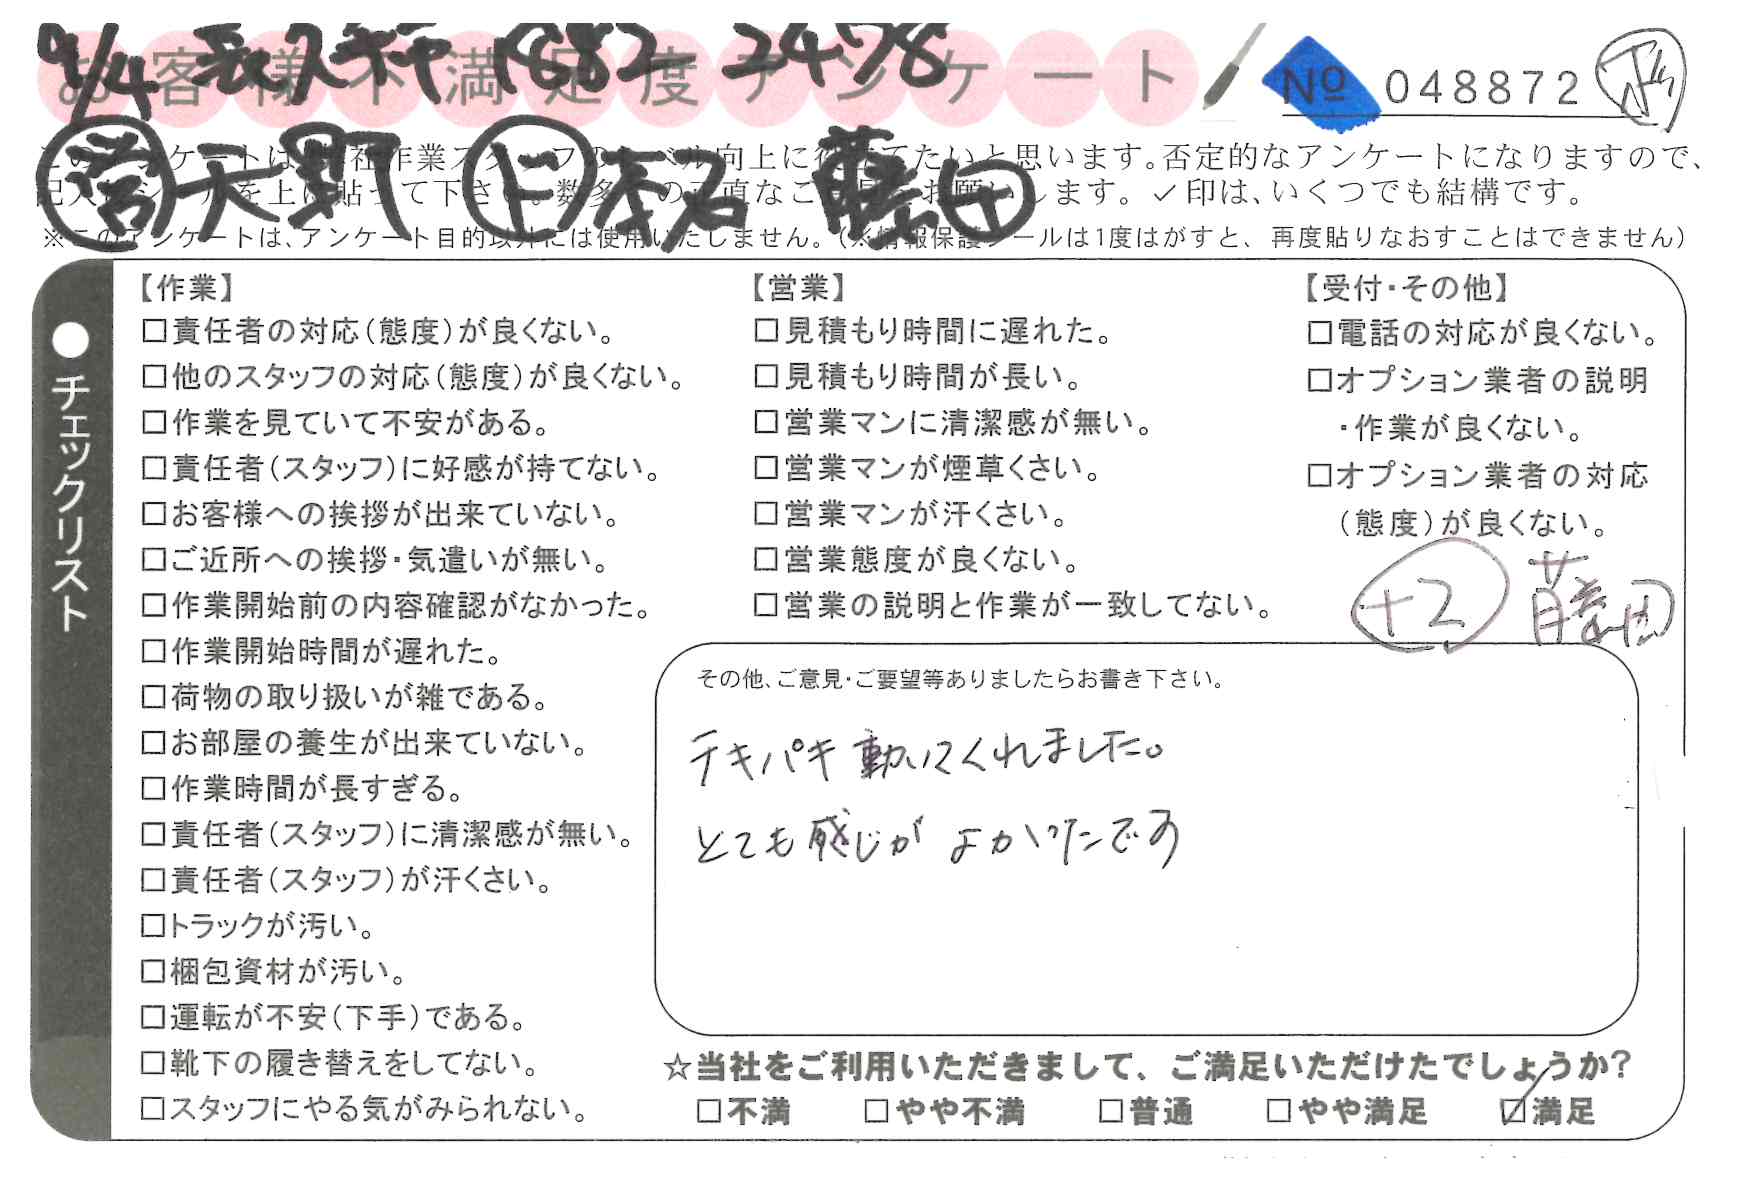 9/4 長久手 1882 2478
お客様不満足度アンケート
№ 048872
営 天野 上 本名 藤田
このアンケートは、弊社作業スタッフのレベル向上に役立てたいと思います。否定的なアンケートになりますので、
記入後シールを上に貼って下さい。数多くの正直なご意見をお願いします。✓印は、いくつでも結構です。
※このアンケートは、アンケート目的以外には使用いたしません。(※情報保護シールは1度はがすと、再度貼りなおすことはできません)
●チェックリスト
【作業】
□責任者の対応(態度)が良くない。
□他のスタッフの対応(態度)が良くない。
□作業を見ていて不安がある。
□責任者(スタッフ)に好感が持てない。
□お客様への挨拶が出来ていない。
□ご近所への挨拶・気遣いが無い。
□作業開始前の内容確認がなかった。
□作業開始時間が遅れた。
□荷物の取り扱いが雑である。
□お部屋の養生が出来ていない。
□作業時間が長すぎる。
□責任者(スタッフ)に清潔感が無い。
□責任者(スタッフ)が汗くさい。
□トラックが汚い。
□梱包資材が汚い。
□運転が不安(下手)である。
□靴下の履き替えをしてない。
□スタッフにやる気がみられない。
【営業】
□見積もり時間に遅れた。
□見積もり時間が長い。
□営業マンに清潔感が無い。
□営業マンが煙草くさい。
□営業マンが汗くさい。
□営業態度が良くない。
□営業の説明と作業が一致してない。
【受付・その他】
□電話の対応が良くない。
□オプション業者の説明
・作業が良くない。
□オプション業者の対応
(態度)が良くない。
+2 藤田
その他、ご意見・ご要望等ありましたらお書き下さい。
テキパキ動いてくれました。
とても感じがよかったです
☆当社をご利用いただきまして、ご満足いただけたでしょうか?
□不満 □やや不満 □普通 □やや満足 ☑満足